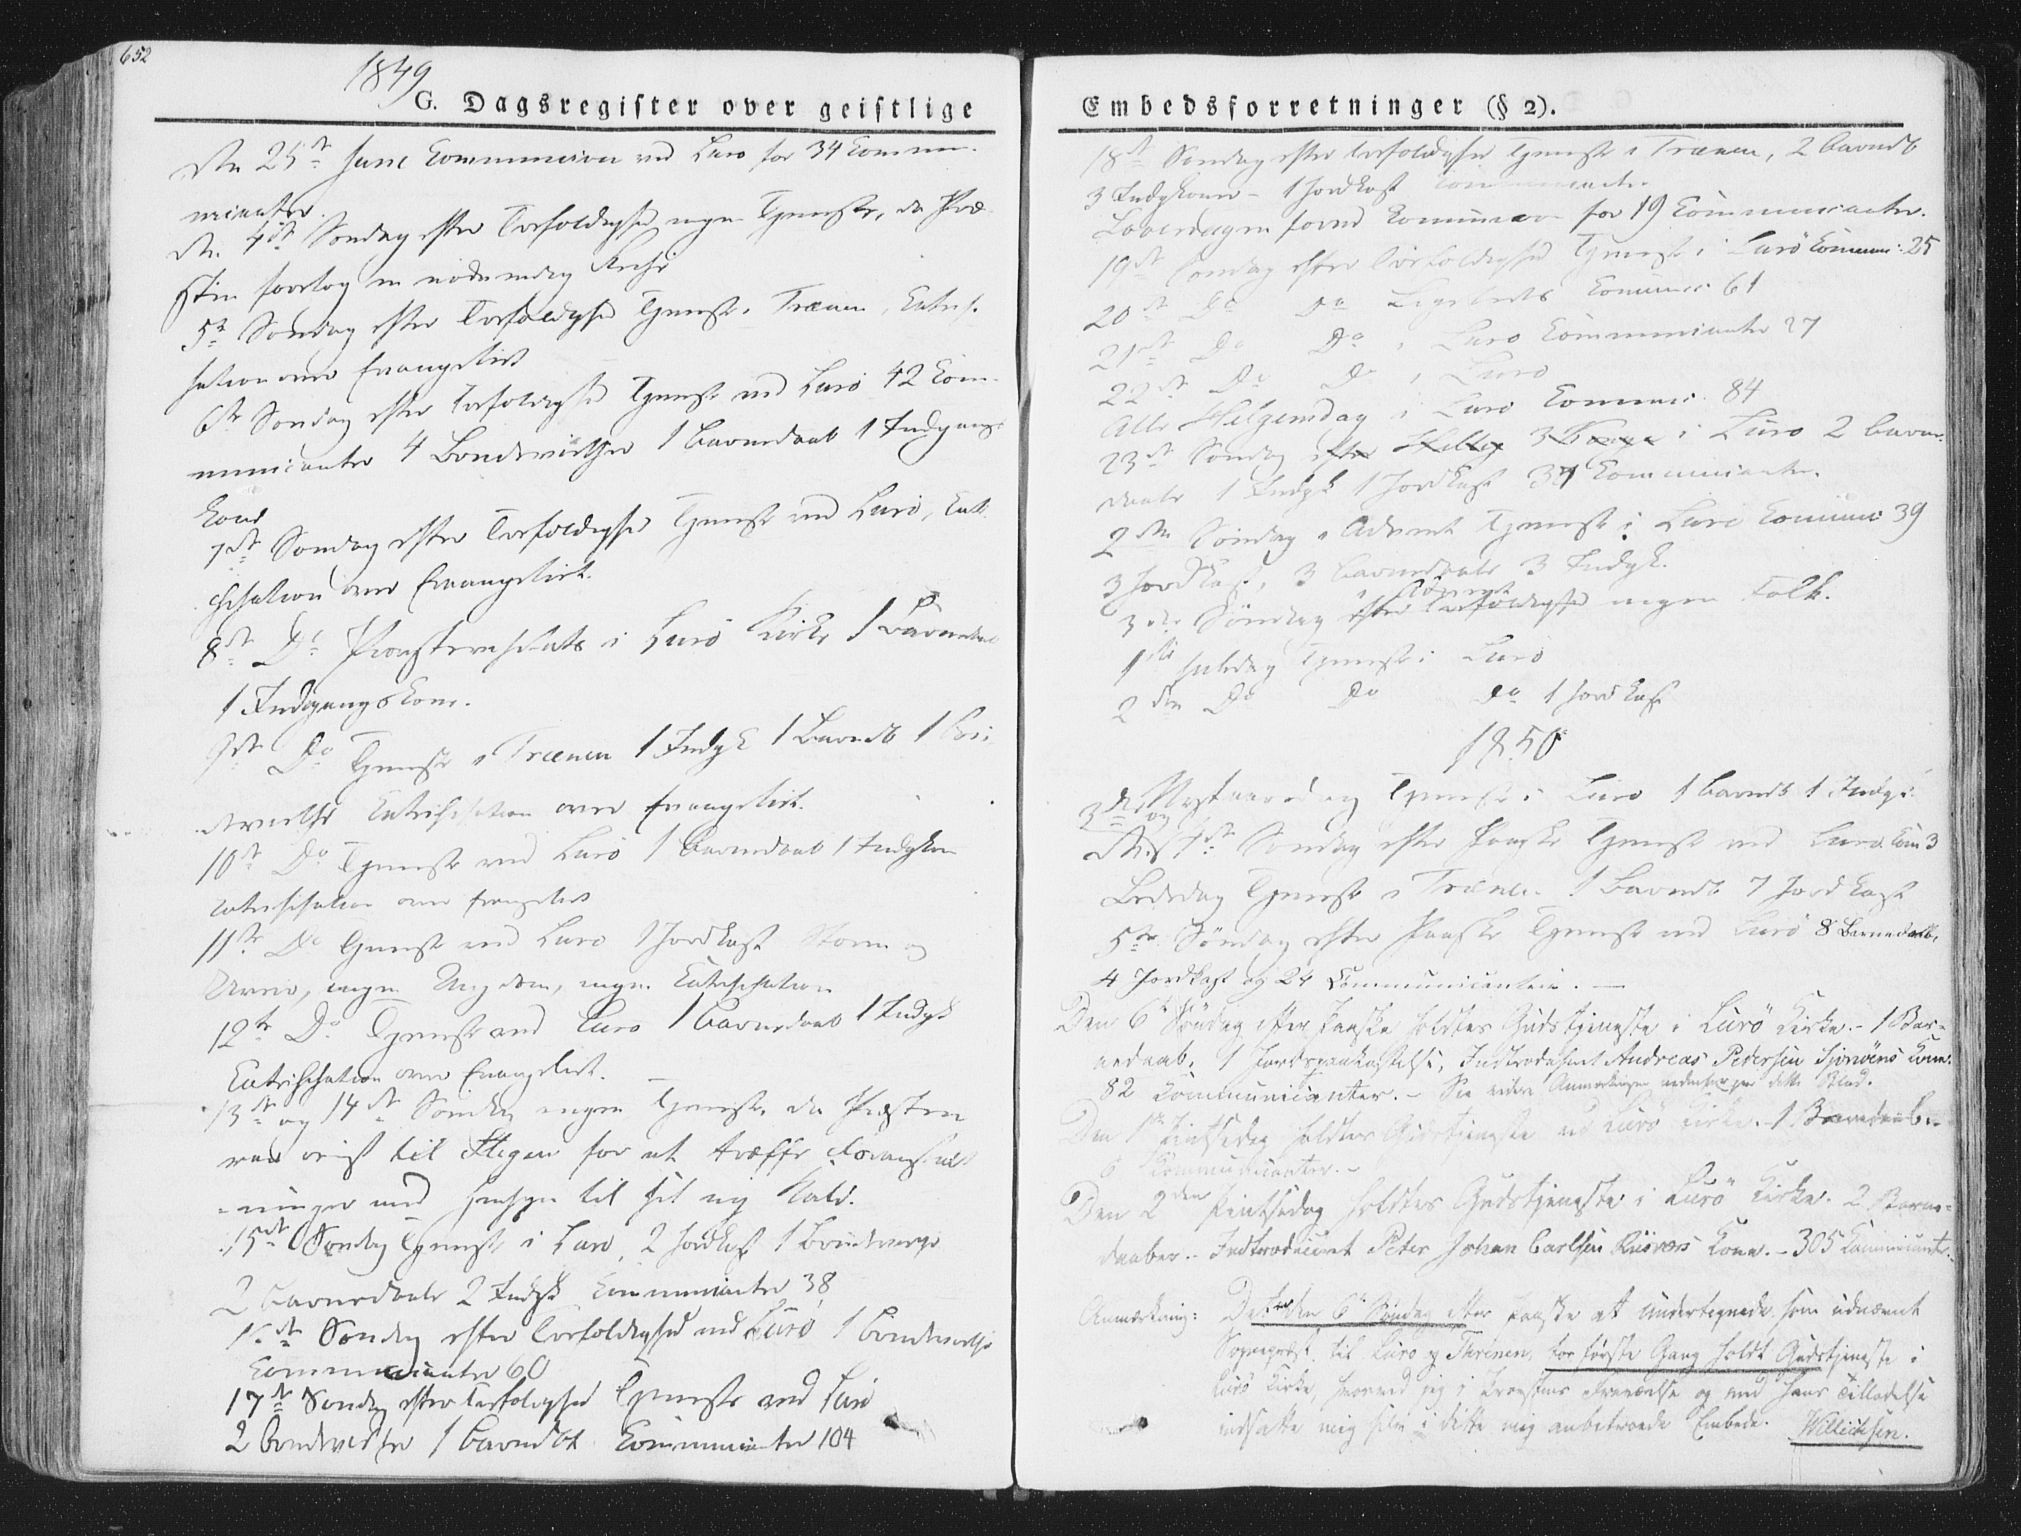 652
1849
G. Dagsregister over geistlige
Den 25de Juni Communion ved Lurö for 34 Commu-
nicanter.
Den 4de Söndag efter Trefoldighed ingen Tjeneste, da Præ-
sten foretog en nödvendig Reise
5te Söndag efter Trefoldighed Tjeneste i Trænen, Catechi-
sation over Evangeliet
6te Söndag efter Trefoldighed Tjeneste ved Lurö 42 Com-
municanter 4 Brudevielser 1 Barnedaab 1 Indgangs-
kone
7de Söndag efter Trefoldighed Tjeneste ved Lurö, Cate-
chisation over Evangeliet.
8de Do Provstevisitats i Lurö Kirke 1 Barnedaab
1 Indgangskone.
9de Do Tjeneste i Trænen 1 Indgk 1 Barndb 1 Bru-
devielse Catechisation over Evangeliet.
10de Do Tjeneste ved Lurö 1 Barnedaab 1 Indgkone
Catechisation over Evangeliet
11te Do Tjeneste ved Lurö 1 Jordkast Storm og
Uveir, ingen Ungdom, ingen Catechisation
12te Do Tjeneste ved Lurö 1 Barnedaab 1 Indgk
Catechisation over Evangeliet.
13de og 14de Söndag ingen Tjeneste, da Præsten
var reist til Stegen for at træffe Foranstalt-
ninger med Hensyn til sit nye Kald.
15de Söndag Tjeneste i Lurö, 2 Jordkast 1 Brudevielse
2 Barnedaab 2 Indgk Communicanter 38
16de Söndag efter Trefoldighed ved Lurö 1 Brudevielse
Communicanter 60
17de Söndag efter Trefoldighed Tjeneste ved Lurö
2 Brudevielser 1 Barndb Communicanter 104
Embedsforretninger (§ 2).
18de Söndag efter Trefoldighed Tjeneste i Trænen, 2 Barndb
3 Indgkoner - 1 Jordkast
Löverdagen forud Communion for 19 Communicanter.
19de Söndag efter Trefoldighed Tjeneste i Lurö Commu: 25
20de Do Do Commu: 61
21de Do Do i Lurö Communicanter 27
22de Do Do i Lurö
Alle Helgensdag i Lurö Commu: 84
23de Söndag efter i Lurö 2 Barne-
daab 1 Indgk 1 Jordkast Communicanter.
2den Söndag i Advent Tjeneste i Lurö Commu: 39
3 Jordkast, 3 Barnedaab 3 Indgk.
3die Söndag i Advent ingen Folk.
1ste Juledag Tjeneste i Lurö
2den Do Do Do 1 Jordkast
1850
Tjeneste i Lurö 1 Barndb 1 Indgk
3die og 4de Söndag efter Paaske Tjeneste ved Lurö. Com 3
Bededag Tjeneste i Trænen. 1 Barndb 7 Jordkast
5te Söndag efter Paaske Tjeneste ved Lurö 8 Barnedaab,
4 Jordkast og 24 Communicanter. —
Den 6te Söndag efter Paaske holdtes Gudstjeneste i Lurö Kirke. - 1 Bar-
nedaab, 1 Jordspaakastelse, Introduceret Andreas Pedersen Sjonöens Kone.
82 Communicanter. - See videre Anmærkningen nedenfor paa dette Blad.
Den 1ste Pintsedag holdtes Gudstjeneste ved Lurö Kirke. 1 Barnedaab. -
6 Communicanter. -
Den 2den Pintsedag holdtes Gudstjeneste i Lurö Kirke. 2 Barne-
daaber. - Introduceret Peter Johan Carlsen Riisværs Kone. - 305 Communicanter.
Anmærkning: Det var den 6te Söndag efter Paaske at Undertegnede, som udnævnt
Sognepræst til Lurö og Thrænen, for förste Gang holdt Gudstjeneste i
Lurö Kirke, hvorved jeg i Provstens Fraværelse og med hans Tilladelse
indsatte mig selv i dette mig anbetroede Embede. Willichsen.